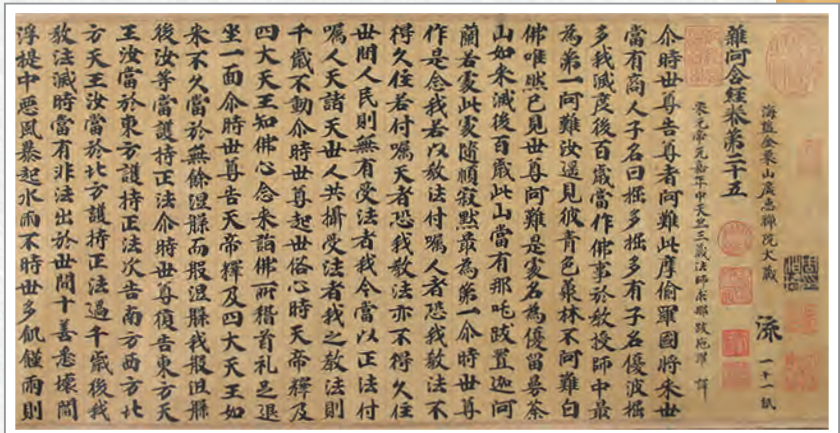 海鹽金粟山廣惠禪院大藏 流 一十一紙
雜阿含經卷第二十五
宋元帝元嘉年中天竺三藏法師求那跋陁羅 譯
尒時世尊告尊者阿難此摩偷羅國將来世
當有商人子名曰掘多掘多有子名優波掘
多我滅度後百歲當作佛事於教授師中最
為第一阿難汝遥見彼青色藂林不阿難白
佛唯然已見世尊阿難是處名為優留曼荼
山如来滅後百歲此山當有那吒跋置迦阿
蘭若處此處隨順寂默最為第一尒時世尊
作是念我若以教法付囑人者恐我教法不
得久住若付囑天者恐我教法亦不得久住
世間人民則無有受法者我今當以正法付
囑人天諸天世人共攝受法者我之教法則
千歲不動尒時世尊起世俗心時天帝釋及
四大天王知佛心念来詣佛所稽首礼足退
坐一面尒時世尊告天帝釋及四大天王如
来不久當於無餘涅槃而般涅槃我般涅槃
後汝等當護持正法尒時世尊復告東方天
王汝當於東方護持正法次告南方西方北
方天王汝當於北方護持正法過千歲後我
教法滅時當有非法出於世間十善悉壞閻
浮提中惡風暴起水雨不時世多飢饉雨則